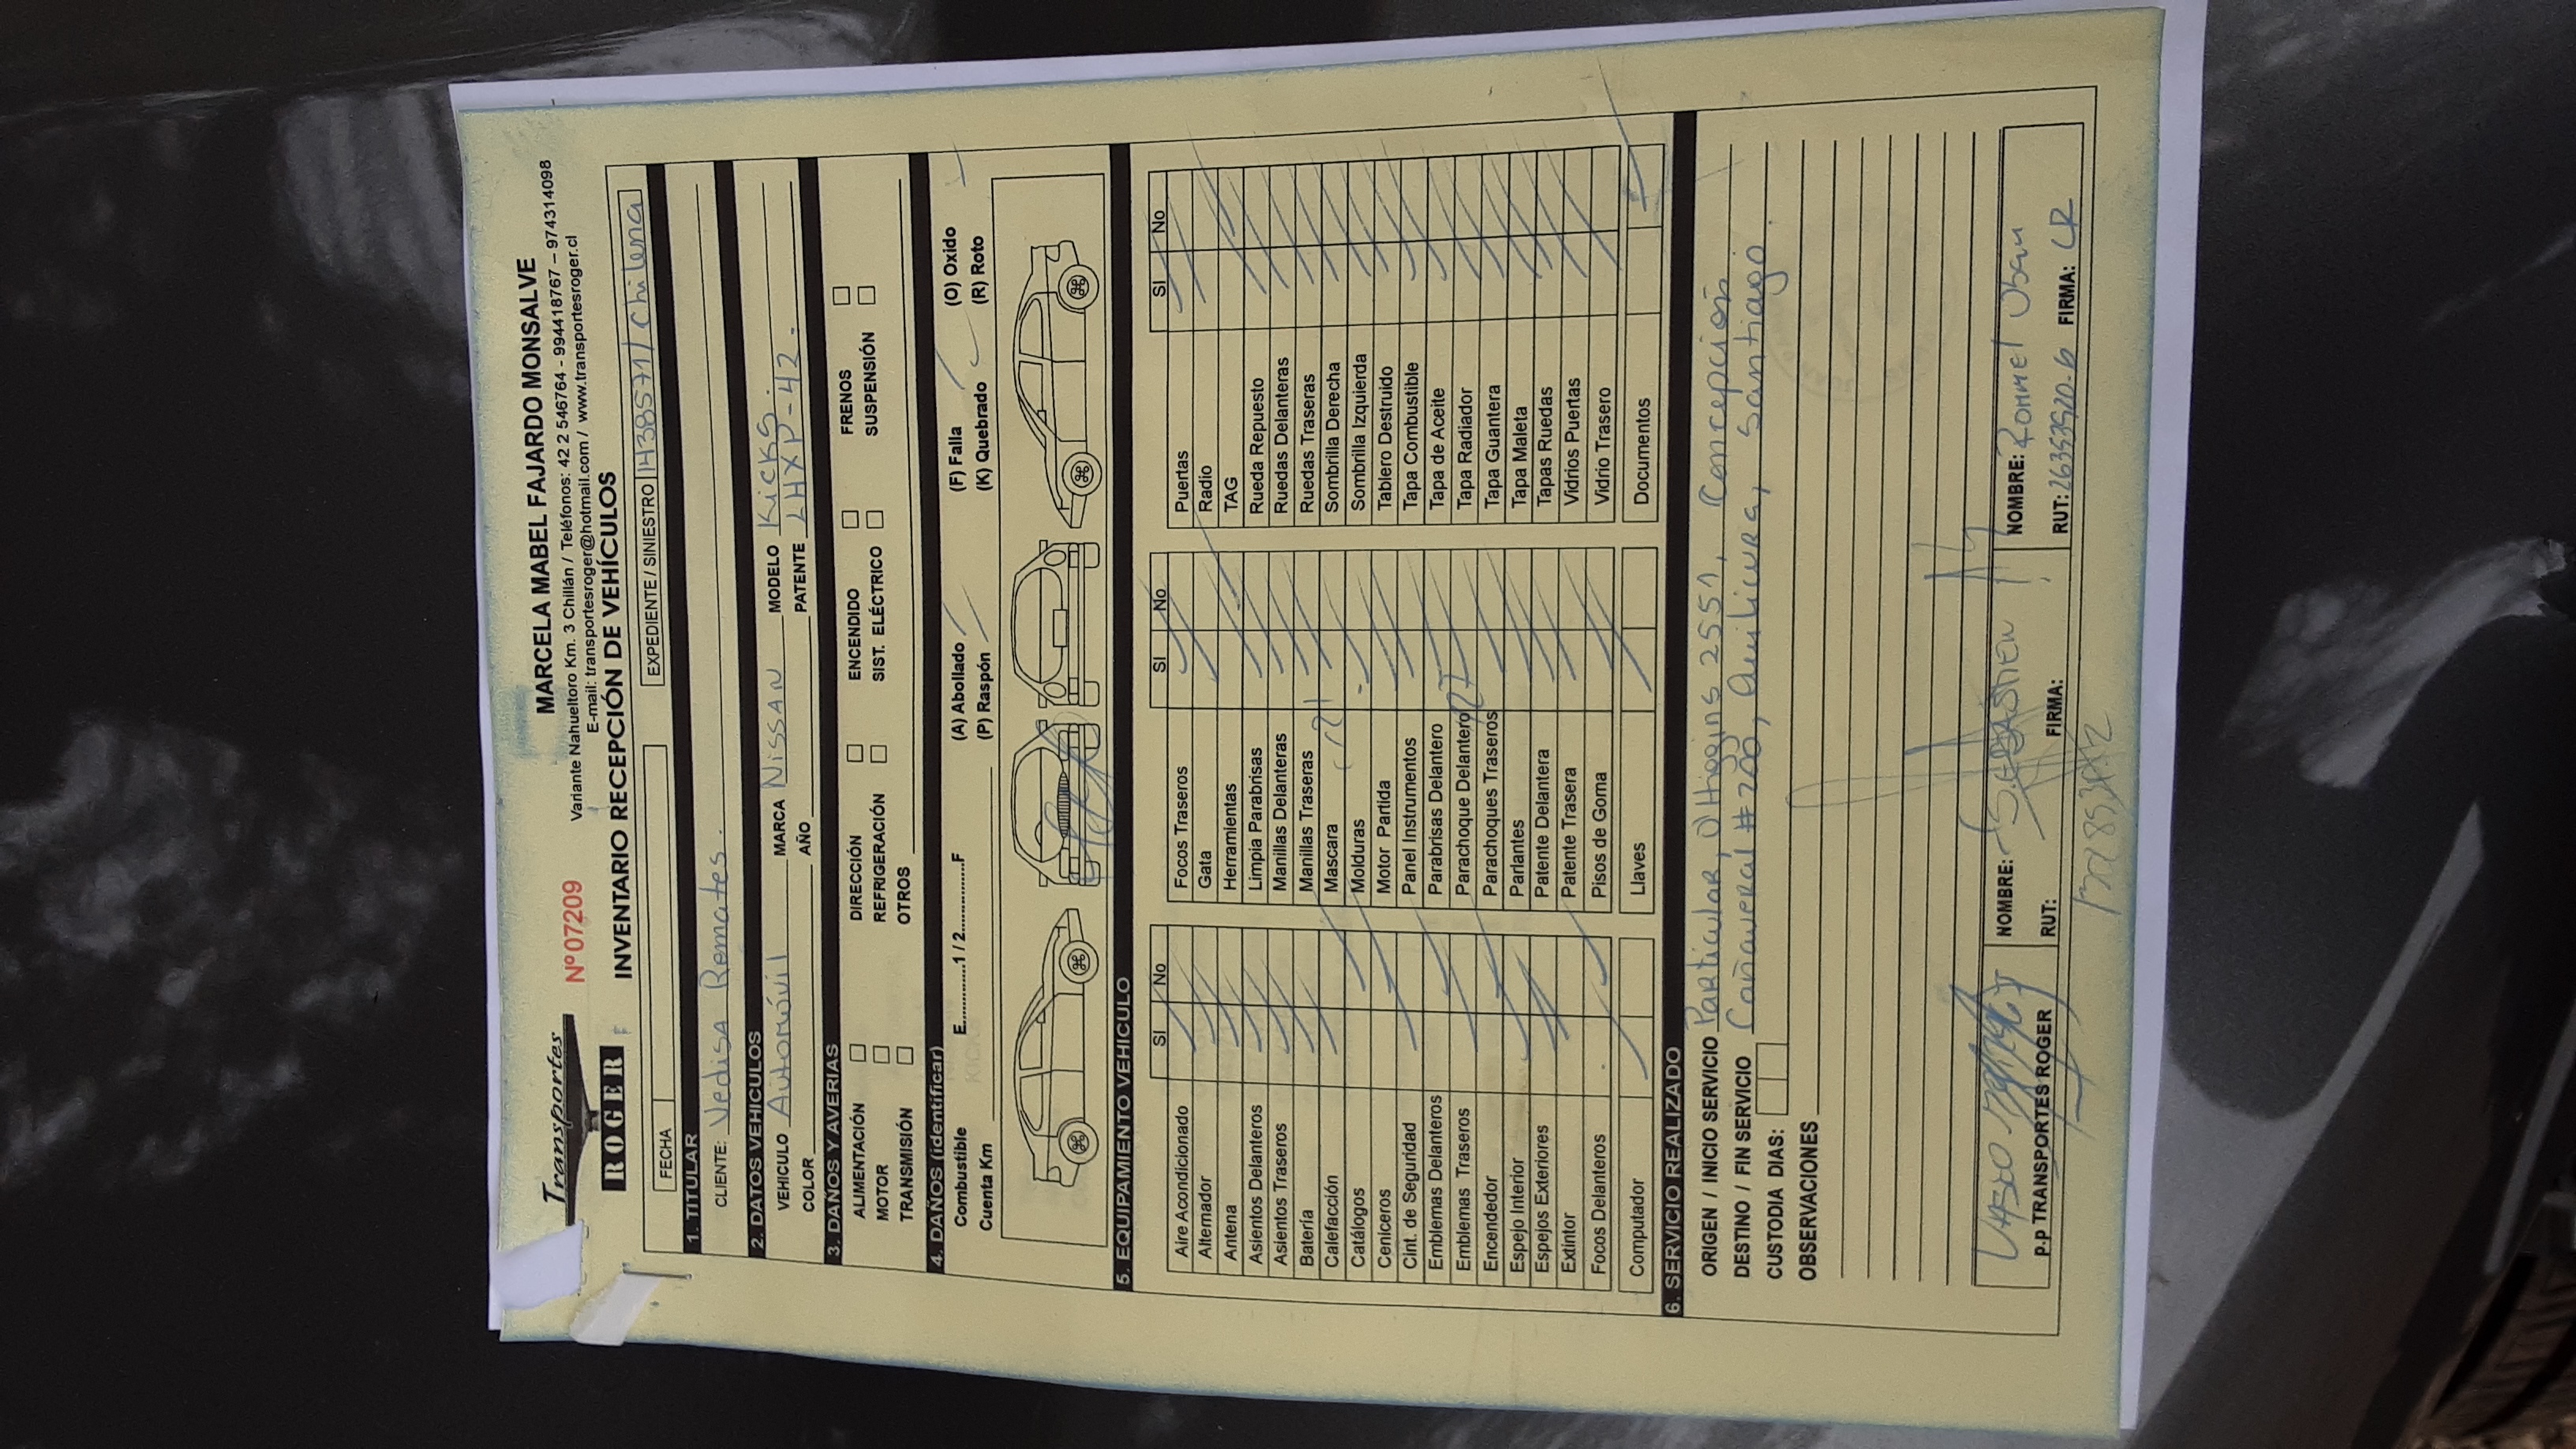 Transportes
ROGER
Nº 07209
MARCELA MABEL FAJARDO MONSALVE
Variante Nahueltoro Km. 3 Chillán / Teléfonos: 42 2 546764 - 994418767 – 974314098
E-mail: transportesroger@hotmail.com / www.transportesroger.cl
INVENTARIO RECEPCIÓN DE VEHÍCULOS
FECHA
EXPEDIENTE / SINIESTRO 14385571 / Chilena
1. TITULAR
CLIENTE: Vedisa Remates.
2. DATOS VEHICULOS
VEHICULO Automóvil MARCA Nissan MODELO Kicks.
COLOR AÑO PATENTE LHXP-42.
3. DAÑOS Y AVERIAS
ALIMENTACIÓN DIRECCIÓN ENCENDIDO FRENOS
MOTOR REFRIGERACIÓN SIST. ELÉCTRICO SUSPENSIÓN
TRANSMISIÓN OTROS
4. DAÑOS (identificar)
Combustible E.............1 / 2.............F (A) Abollado (F) Falla (O) Oxido
Cuenta Km (P) Raspón (K) Quebrado (R) Roto
5. EQUIPAMIENTO VEHICULO
SI No SI No SI No
Aire Acondicionado Focos Traseros Puertas
Alternador Gata Radio
Antena Herramientas TAG
Asientos Delanteros Limpia Parabrisas Rueda Repuesto
Asientos Traseros Manillas Delanteras Ruedas Delanteras
Batería Manillas Traseras Ruedas Traseras
Calefacción Mascara Sombrilla Derecha
Catálogos Molduras Sombrilla Izquierda
Ceniceros Motor Partida Tablero Destruido
Cint. de Seguridad Panel Instrumentos Tapa Combustible
Emblemas Delanteros Parabrisas Delantero Tapa de Aceite
Emblemas Traseros Parachoque Delantero Tapa Radiador
Encendedor Parachoques Traseros Tapa Guantera
Espejo Interior Parlantes Tapa Maleta
Espejos Exteriores Patente Delantera Tapas Ruedas
Extintor Patente Trasera Vidrios Puertas
Focos Delanteros Pisos de Goma Vidrio Trasero
Computador Llaves Documentos
6. SERVICIO REALIZADO
ORIGEN / INICIO SERVICIO Particular, OHiggins 2551, Concepción.
DESTINO / FIN SERVICIO Cañaveral #200, Quilicura, Santiago.
CUSTODIA DIAS:
OBSERVACIONES
p.p TRANSPORTES ROGER
NOMBRE:
RUT: FIRMA:
NOMBRE: Rommel
RUT: FIRMA: